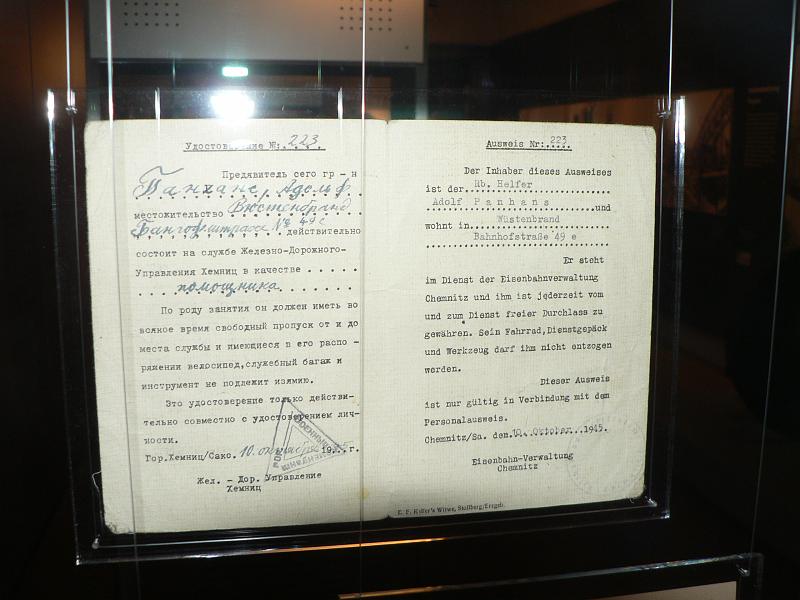 Удостоверение №: 223
Предъявитель сего гр-н
Панханс, Адольф
местожительство Вюстенбранд
Бангофштрассе № 49 е действительно
состоит на службе Железно-Дорожного-
Управления Хемниц в качестве . . . . .
помощника
По роду занятия он должен иметь во
всякое время свободный пропуск от и до
места службы и имеющиеся в его распо-
ряжении велосипед, служебный багаж и
инструмент не подлежит изямию.
Это удостоверение только действи-
тельно совместно с удостоверением лич-
ности.
Гор.Хемниц/Сакс. 10. октября 1945 г.
Жел. - Дор. Управление
Хемниц
Ausweis Nr: 223
Der Inhaber dieses Ausweises
ist der Rb. Helfer
Adolf Panhans und
wohnt in Wüstenbrand
Bahnhofstraße 49 e
Er steht
im Dienst der Eisenbahnverwaltung
Chemnitz und ihm ist jederzeit vom
und zum Dienst freier Durchlass zu
gewähren. Sein Fahrrad, Dienstgepäck
und Werkzeug darf ihm nicht entzogen
werden.
Dieser Ausweis
ist nur gültig in Verbindung mit dem
Personalausweis.
Chemnitz/Sa. den 10. Oktober 1945.
Eisenbahn-Verwaltung
Chemnitz
E. F. Keller's Witwe, Stollberg/Erzgeb.